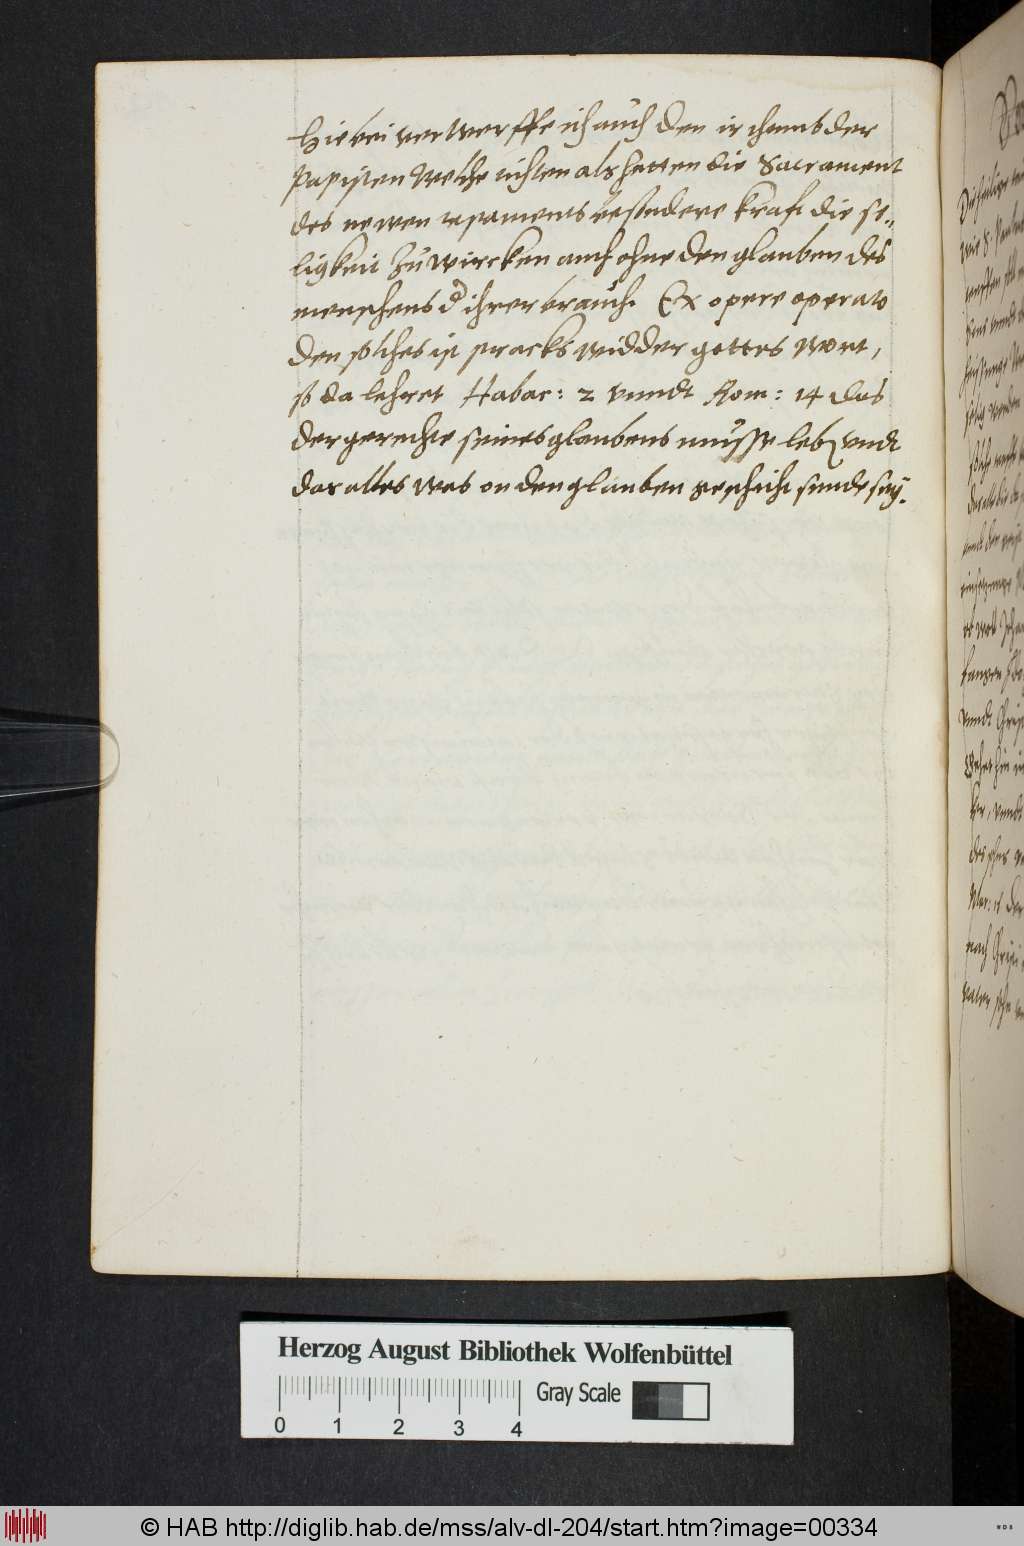 Hiebei verwerffe ich auch den irthumb der
Papisten welche tichten als hetten die Sacrament
des newen testaments besondere krafft die se„
ligkeit zu wircken auch ohne den glauben des
menschens d ihrer brauch. Ex opere operato
den solches ist stracks widder gottes wort,
so da lehret Habac: 2 vnndt Rom: 14 das
der gerechte seines glaubens müsse leb vndt
das alles was on den glauben geschicht sunde sey.
Die heilige
wie S. Paulus
vnndt
vnndt
nach
vater
Herzog August Bibliothek Wolfenbüttel
Gray Scale
0 1 2 3 4
© HAB http://diglib.hab.de/mss/alv-dl-204/start.htm?image=00334